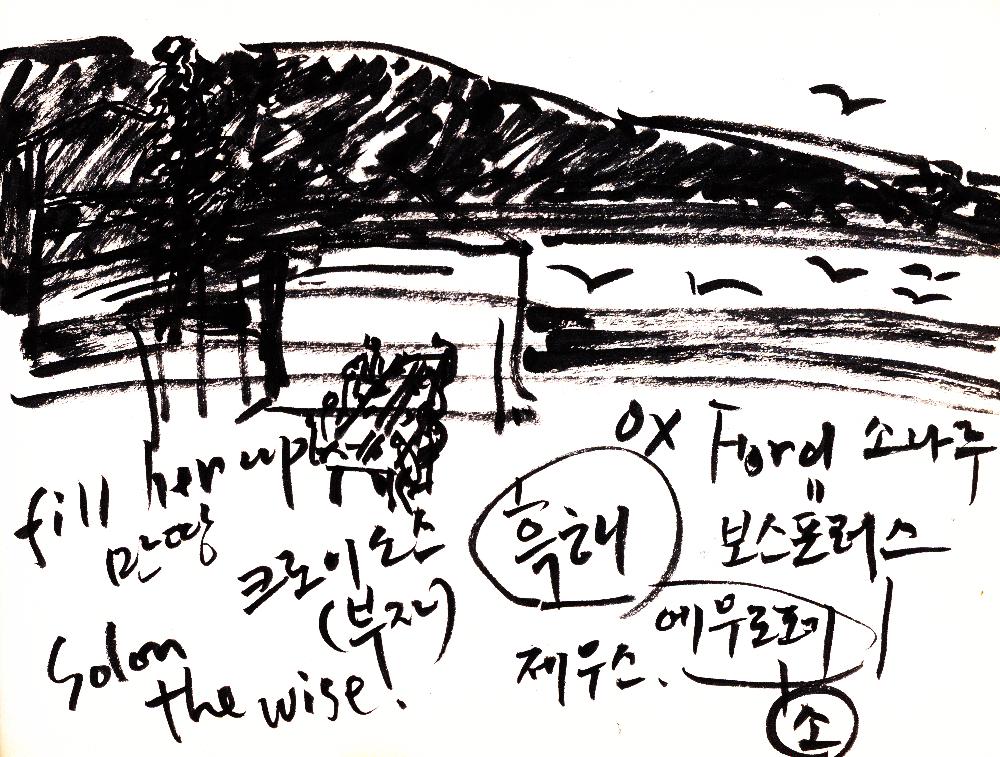 fill her up
만땅
크로이소스
(부자)
Solon
the wise.
OX Ford 소나루
=
흑해
보스포러스
제우스. 에우로페
소